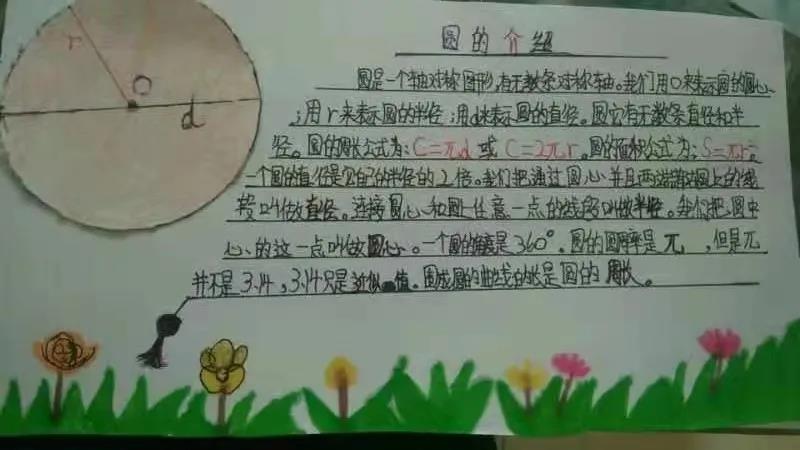 圆的介绍
r
O
d
圆是一个轴对称图形,有无数条对称轴。我们用O来表示圆的圆心,
;用r来表示圆的半径;用d来表示圆的直径。圆它有无数条直径和半
径。圆的周长公式为:C=πd或C=2πr。圆的面积公式为:S=πr²
一个圆的直径是它自己的半径的2倍。我们把通过圆心并且两端都在圆上的线
段叫做直径。连接圆心和圆上任意一点的线段叫做半径。我们把圆中
心的这一点叫做圆心。一个圆的角度是360°。圆的圆周率是π,但是π
并不是3.14,3.14只是近似值。围成圆的曲线的长是圆的周长。